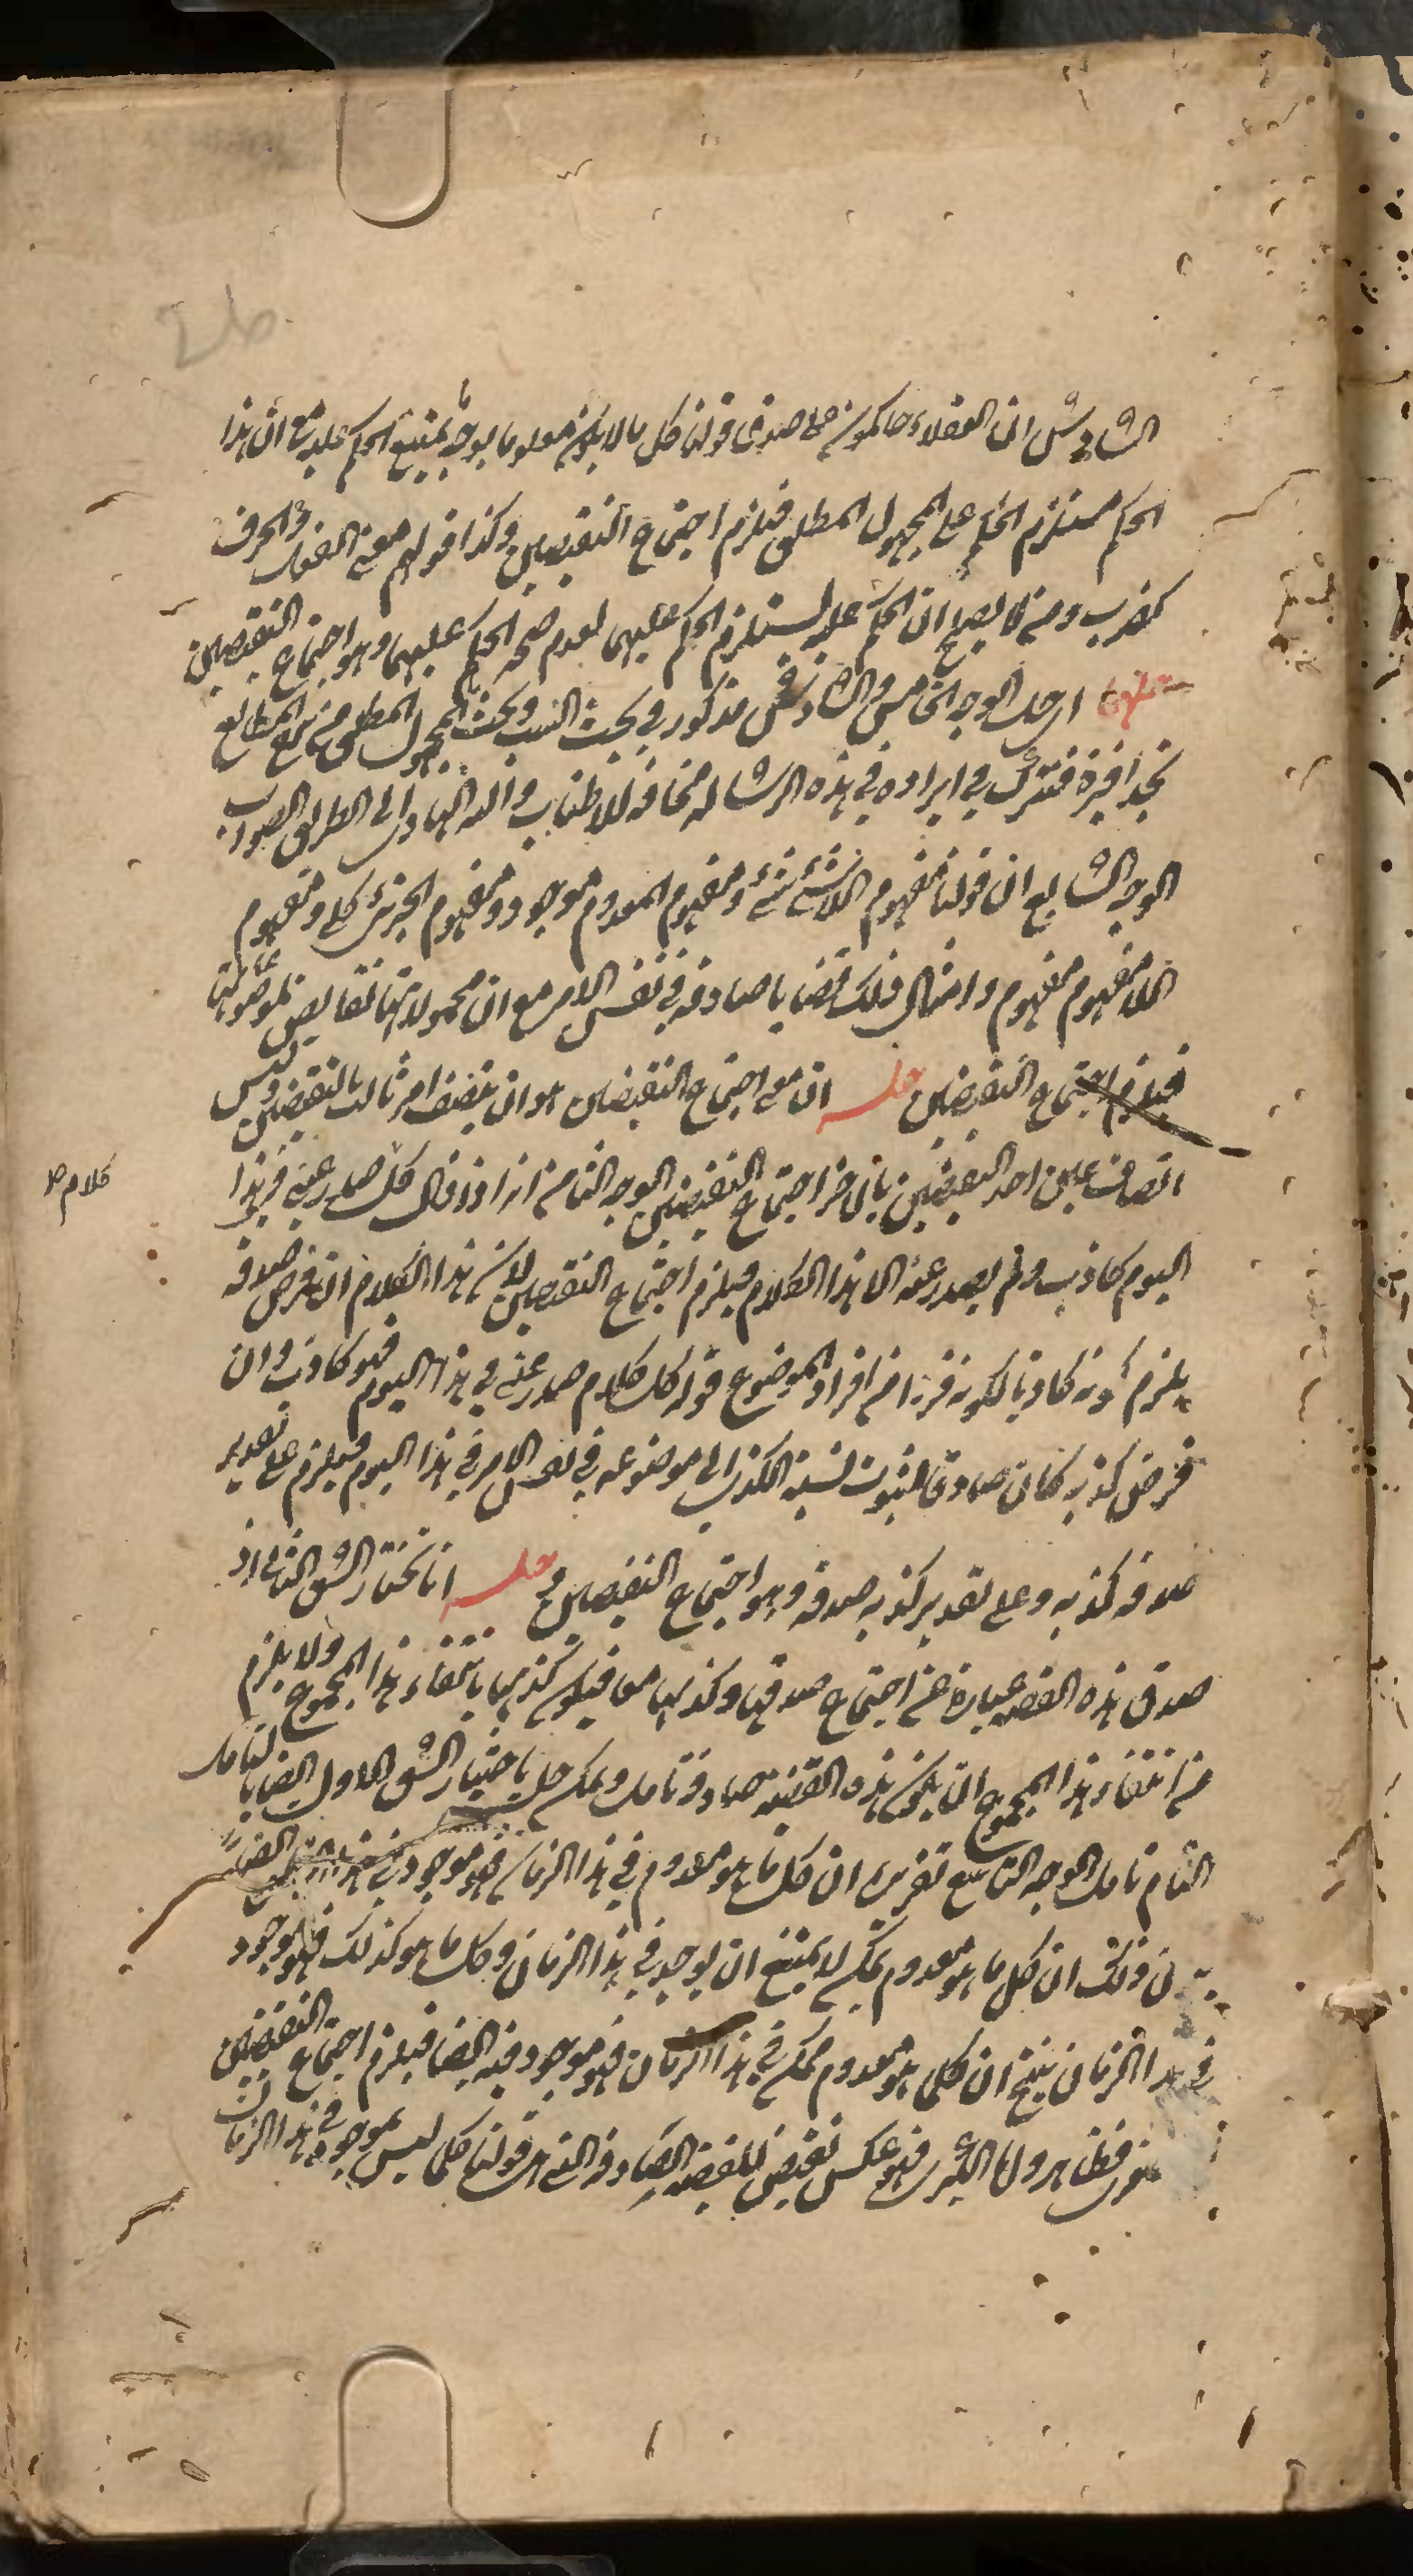 26
السادس ان العقلاء حاكمون على صدق قولنا كل ما لا يكون معلوما بوجه ما يمتنع الحكم عليه مع ان هذا
الحكم مستلزم الحكم على المجهول المطلق فيلزم اجتماع النقيضين وكذا قولهم معنى الفعل والحرف
كضرب ومن لا يصلح ان يحكم عليه يستلزم الحكم عليهما لعدم صحة الحكم عليهما وهو اجتماع النقيضين
حلهما ارحل الوجه الخامس والسادس مذكور في بحث النسب وبحث المجهول المطلق من شرح المطالع
بحذافيره فنتركه في ايراده في هذه الرسالة مخافة للاطناب والله الهادي الى الطريق الصواب
الوجه السابع ان قولنا مفهوم اللاشئ شئ ومفهوم المعدوم موجود ومفهوم الجزئى كلى ومفهوم
اللامفهوم مفهوم وامثال ذلك قضايا صادقه في نفس الامر مع ان محمولاتها نقايض لموضوعاتها
فيلزم اجتماع النقيضين حله ان معنى اجتماع النقيضين هو ان يتصف امر ثالث بالنقيضين وليس
اتصاف عين احد النقيضين بالاخر اجتماع النقيضين الوجه الثامن انه اذا قال كل صدر عنى في هذا
كلام صح
اليوم كاذب ولم يصدر عنه الا هذا الكلام فيلزم اجتماع النقيضين لان هذا الكلام ان فرض صدقه
يلزم كونه كاذبا لكونه فردا من افراد الموضوع قوله كل كلام صدر عنى في هذا اليوم فهو كاذب وان
فرض كذبه كان صادقا لثبوت نسبة الكذب الى موضوعه في نفس الامر في هذا اليوم فيلزم على تقدير
صدقه كذبه وعلى تقدير كذبه صدقه وهو اجتماع النقيضين حله انا نختار الشق الثانى اذ
صدق هذه القضيه عبارة عن اجتماع صدقها وكذبها معا فيكون كذبها بانتفاء هذا المجموع ولا يلزم
من انتفاء هذا المجموع ان يكون هذه القضيه صادقة تامل ويمكن حله باختيار الشق الاول ايضا بالتامل
التام تامل الوجه التاسع تقريره ان كل ما هو معدوم في هذا الزمان فهو موجود في هذا الزمان ايضا
بيان ذلك ان كل ما هو معدوم يمكن لا يمتنع ان يوجد في هذا الزمان وكل ما هو كذلك فهو موجود
في هذا الزمان ينتج ان كلما هو معدوم ممكن في هذا الزمان فهو موجود فيه ايضا فيلزم اجتماع النقيضين
الصغرى فظاهر واما الكبرى فهو عكس نقيض للقضيه الصادقه التى هى قولنا كلما ليس بموجود في هذا الزمان